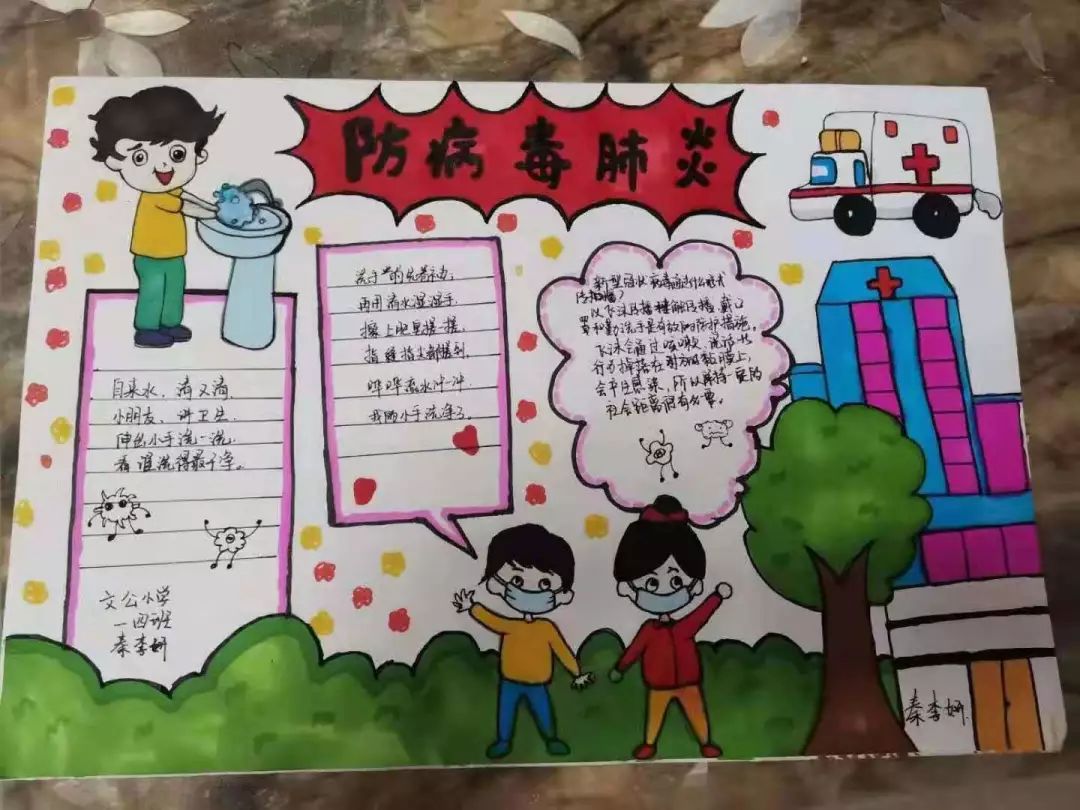 防病毒肺炎
自来水,清又清
小朋友、讲卫生
伸出小手洗一洗
看谁洗得最干净。
文公小学
一四班
秦李妍
洗手
再用清水湿湿手
擦上肥皂搓一搓
指缝指尖都搓到
哗哗流水冲一冲
我的小手洗净了。
新型冠状病毒通过什么形式
传播播?
以飞沫传播接触传播,戴口
罩和勤洗手是有效的防护措施。
飞沫会通过咳嗽 说话
行为掉落在对方的黏膜上,
会产生感染,所以保持一定的
社会距离很有必要。
秦李妍